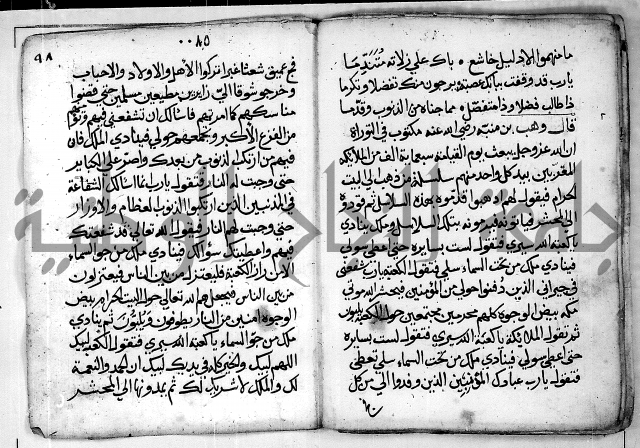 ما منهموا الا دليل خاشع باك علي زلاته متندما
يا رب قد وقفت ببابك عصبة يرجون منك تفضلا وتكرما
ذا طالب فضلا وذا متنصل مما جناه من الذنوب وقدما
قال وهب بن منبه رضي الله عنه مكتوب في التوراة
ان الله عز وجل يبعث يوم القيامة سبعماية الف من الملايكة
المقربين بيد كل واحد منهم سلسلة من ذهب الي البيت
الحرام فيقول لهم اذهبوا فزموه بهذه السلاسل ثم قودوه
الي المحشر فياتونه فيزمونه بتلك السلاسل وملك ينادي
يا كعبة الله سيري فتقول لست بسايرة حتي اعطي سولي
فينادي ملك من تحت السماء سلي فتقول الكعبة يا رب شفعني
في جيراني الذين دفنوا حولي من المؤمنين فيحشر الله موتي
مكة بيض الوجوه كلهم محرمين مجتمعين حول الكعبة يلبون
ثم تقول الملايكة يا كعبة الله سيري فتقول لست بسايرة
حتي اعطي سولي فينادي ملك من تحت السماء سلي تعطي
فتقول يا رب عبادك المؤمنين الذين وفدوا الي من كل
٠٠٨٥
٩٨
فج عميق شعثا غبرا تركوا الاهل والاولاد والاحباب
وخرجو شوقا الي زايرين مطيعين مسلمين حتي قضوا
مناسكهم كما امرتهم فاسالك ان تشفعني فيهم وتومنهم
من الفزع الاكبر وتجمعهم حولي فينادي الملك فان
فيهم من ارتكب الذنوب من بعدك واصر علي الكباير
حتي وجبت له النار فتقول يا رب انما اسالك الشفاعة
في المذنبين الذين ارتكبوا الذنوب العظام والاوزار
حتي وجبت لهم النار فيقول الله تعالي قد شفعتك
فيهم واعطيتك سؤالك فينادي ملك من جو السماء
الا من زار الكعبة فليعتزل من بين الناس فيعتزلون
من بين الناس فيجعلهم الله تعالي حول البيت الحرام بيض
الوجوه امنين من النار يطوفون ويلبون ثم ينادي
ملك من جو السماء يا كعبة الله سيري فتقول الكعبة لبيك
اللهم لبيك والخير كله في يديك لبيك ان الحمد والنعمة
لك والملك لا شريك لك ثم يمدونها الي المحشر